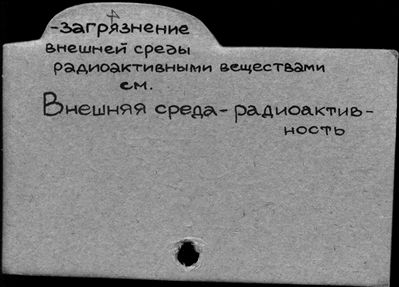 -загрязнение
внешней среды
радиоактивными веществами
см.
Внешняя среда - радиоактив-
ность